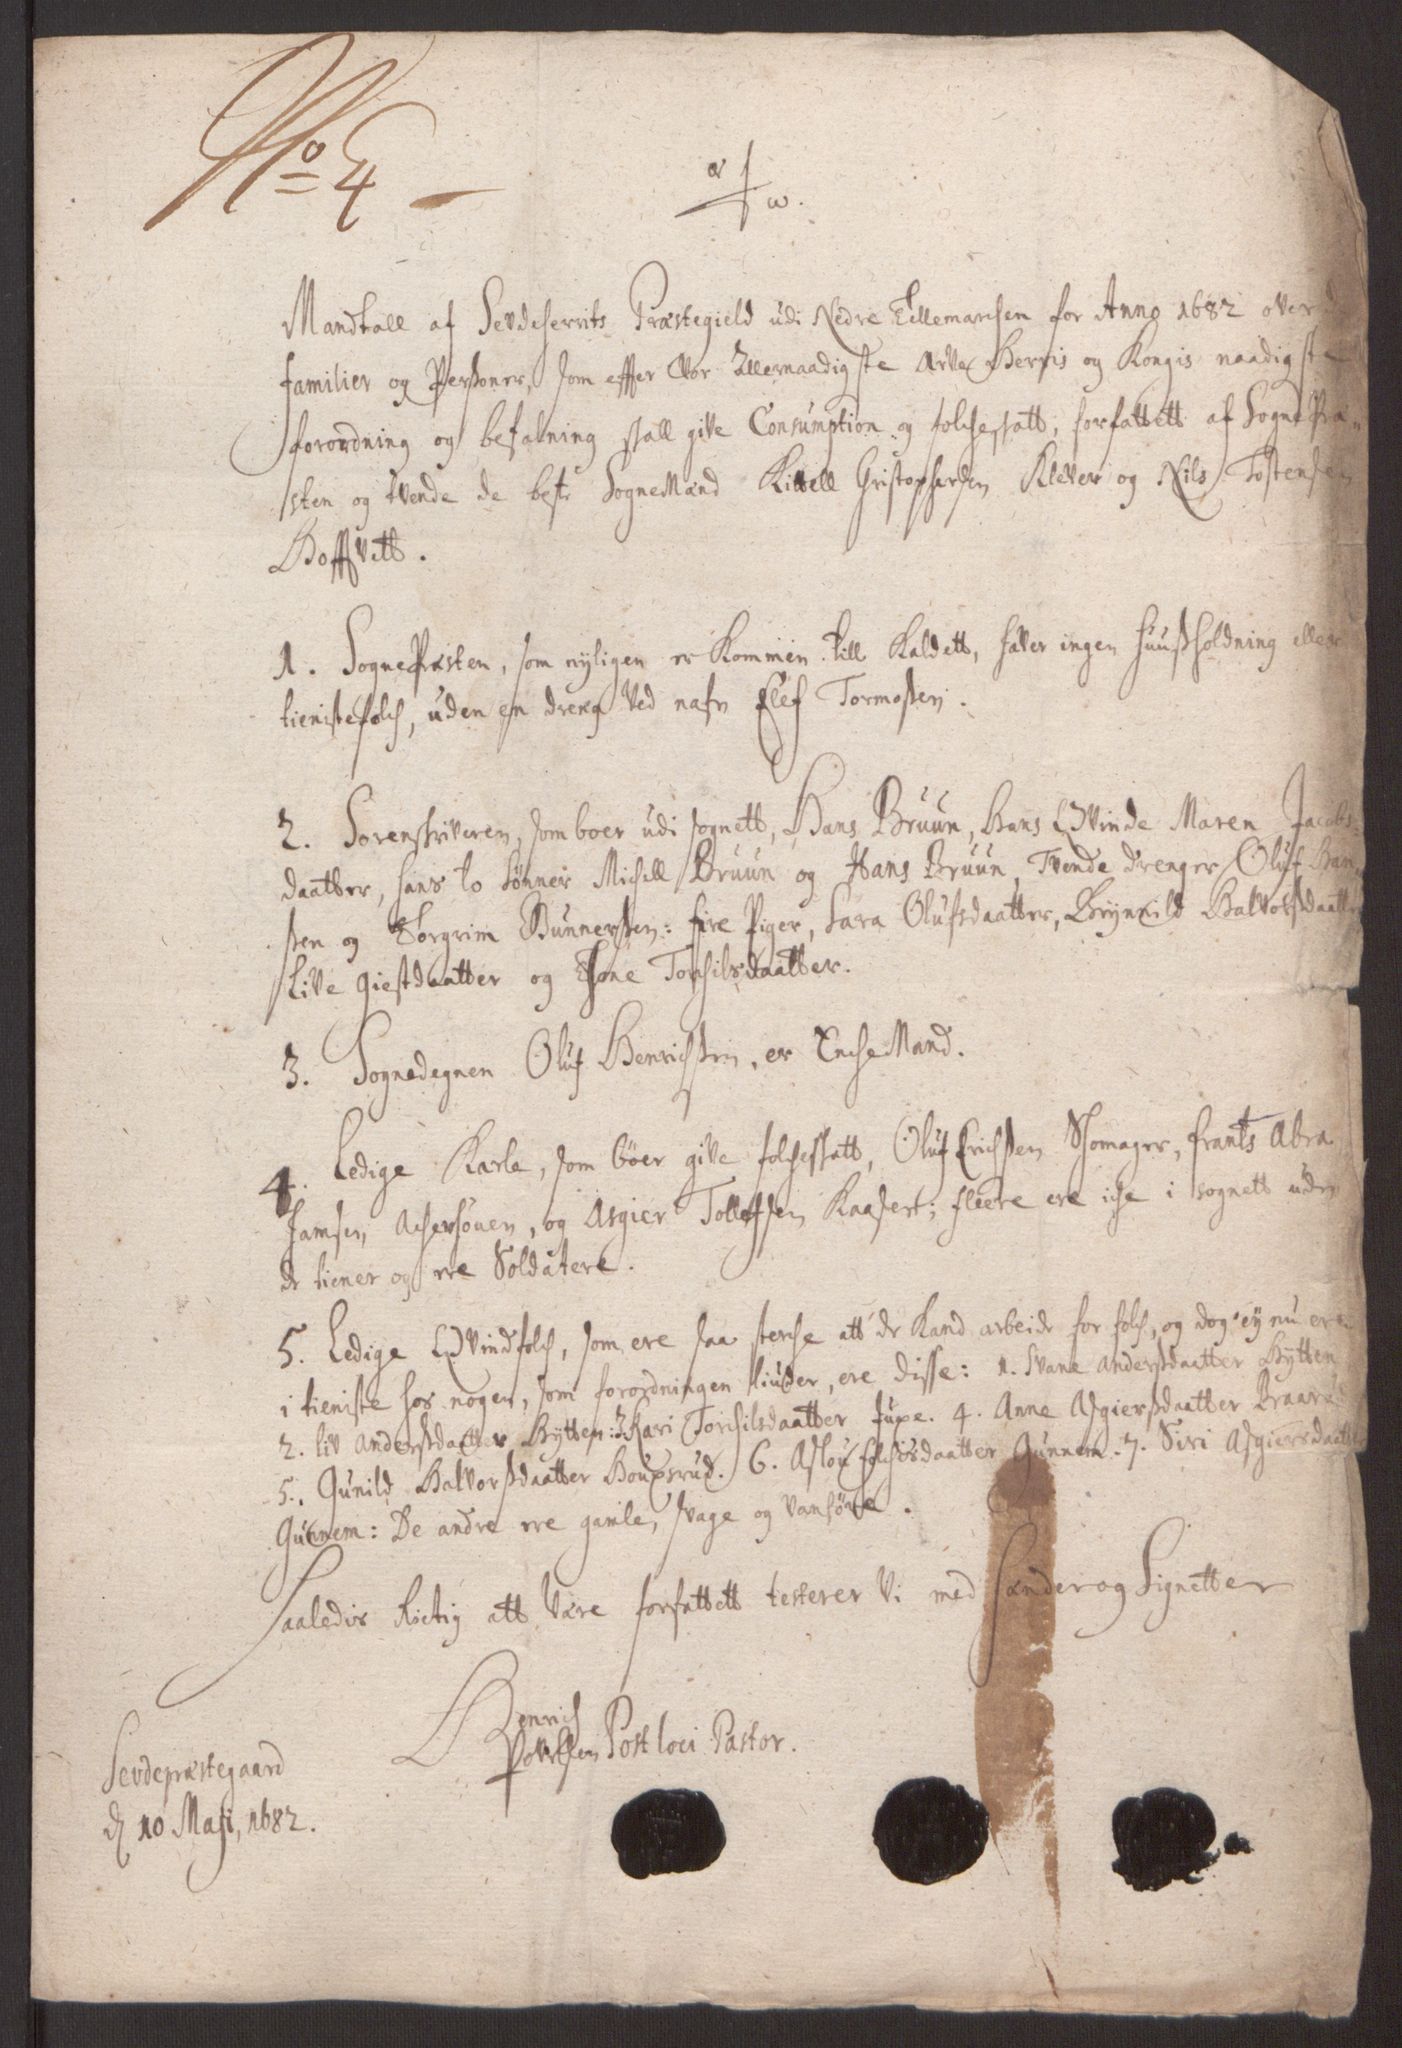 No 4
α ω.
Mandtall af Sevdeherrits Præstegield udi Nedre Tellemarchen for Anno 1682 over
familier og Personer, som effter Vor Allernaadigste Arve Herris og Kongis naadigste
forordning og befalning skall give Consumption og folcheskatt, forfattett af SognePræ-
sten og tvende de beste SogneMænd Kittell Christophersen Klever og Nils Tostensen
Hoffvett.
1. SognePræsten, som nyligen er Kommen till Kaldett, haver ingen huusholdning eller
tienistefolch, uden en dreng ved nafn Elef Tormossen.
2. Sorenskriveren, som boer udi sognett, Hans Bruun, Hans Qvinde Maren Jacobs-
daatter, hans to Sønner Michell Bruun og Hans Bruun, Tvende drenger Oluf Han-
sen og Torgrim Gunnersen: fire Piger, Sara Olufsdaatter, Brynild Halvorsdaatter
Live Giestdaatter og Tone Torchilsdaatter.
3. Sognedegnen Oluf Henrichsen, er EncheMand.
4. Ledige Karle, som bøer give folcheskatt, Oluf Erichsen Skomager, frants Abra
hamsen, Achersouen, og Asgier Tollefsen Kaasen; fleere ere iche i sognett uden
de tiener og ere Soldatere.
5. Ledige Qvindfolch, som ere saa sterche att de Kand arbeide for folch, og dog ey nu ere
i tieniste hos nogen, som forordningen liuder, ere disse: 1. Svane Andersdaatter Hytten
2. Liv Andersdaatter Hytten: 3 Kari Torchilsdaatter Jupe. 4. Anne Asgiersdaatter Braar
5. Gunild Halvorsdaatter Houxrud. 6. Aslou folchisdaatter Gunnem. 7. Siri Asgiersdaatter
Gunnem: De andre ere gamle, svage og vanføre.
Saaledis Rictig att være forfattett testerer Vi med Hænder og Signetter
Henrich
Povelsen Post loci Pastor.
Sevdepræstegaard
d 10 Maji, 1682.